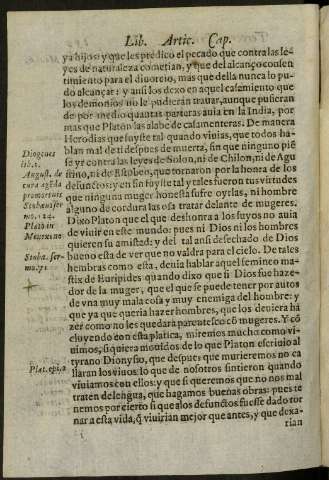 Lib. Artic. Cap.
ya hijos: y que les predico el pecado que contra las le-
yes de naturaleza cometian, y que del alcanço consen-
timiento para el diuorcio, mas que della nunca lo pu-
do alcançar: y ansi los dexo en aquel casamiento que
los demonios no le pudieran trauar, aunque pusieran
de por medio quantas parteras auia en la India, por
mas que Platon las alabe de casamenteras. De manera
Herodias que fuyste tal quando viuias, que todos ha-
blan mal de ti despues de muerta, sin que ninguno piē
se yr contra las leyes de Solon, ni de Chilon, ni de Agu
stino, ni de Estoben, que tornaron por la honra de los
defunctos: y en fin fuyste tal y tales fueron tus virtudes
que ninguna muger honesta sufre oyrlas, ni hombre
alguno de cordura las osa tratar delante de mugeres.
Dixo Platon que el que deshonra a los suyos no auia
de viuir en este mundo: pues ni Dios ni los hombres
quieren su amistad: y del tal ansi desechado de Dios
bueno esta de ver que no valdra para el cielo. De tales
hembras como esta, deuia hablar aquel feminco ma-
stix de Euripides quando dixo que si Dios fue haze-
dor de la muger, que el que se puede tener por autor
de vna muy mala cosa y muy enemiga del hombre: y
que ya que queria hazer hombres, que los deuiera há
zer como no les quedara parentesco cō mugeres. Y cō
cluyendo con esta platica, miremos mucho como vi-
uimos, si quiera mouidos de lo que Platon escriuio al
tyrano Dionysio, que despues que murieremos no ca
llaran los viuos lo que de nosotros sintieron quando
viuiamos con ellos: y que si queremos que no nos mal
traten de lengua, que hagamos buenas obras: pues te
nemos por cierto si que a los defunctos fuesse dado tor
nar a esta vida, q̄ viuirian mejor que antes, y que dexa-
rian
Diogenes
lib. 1.
August. de
cura agēda
pro mortuis
Stobeus ser
mo. 124.
Plato in
Menexeno
Stoba. ser-
mo. 71.
Plat. epi. 2